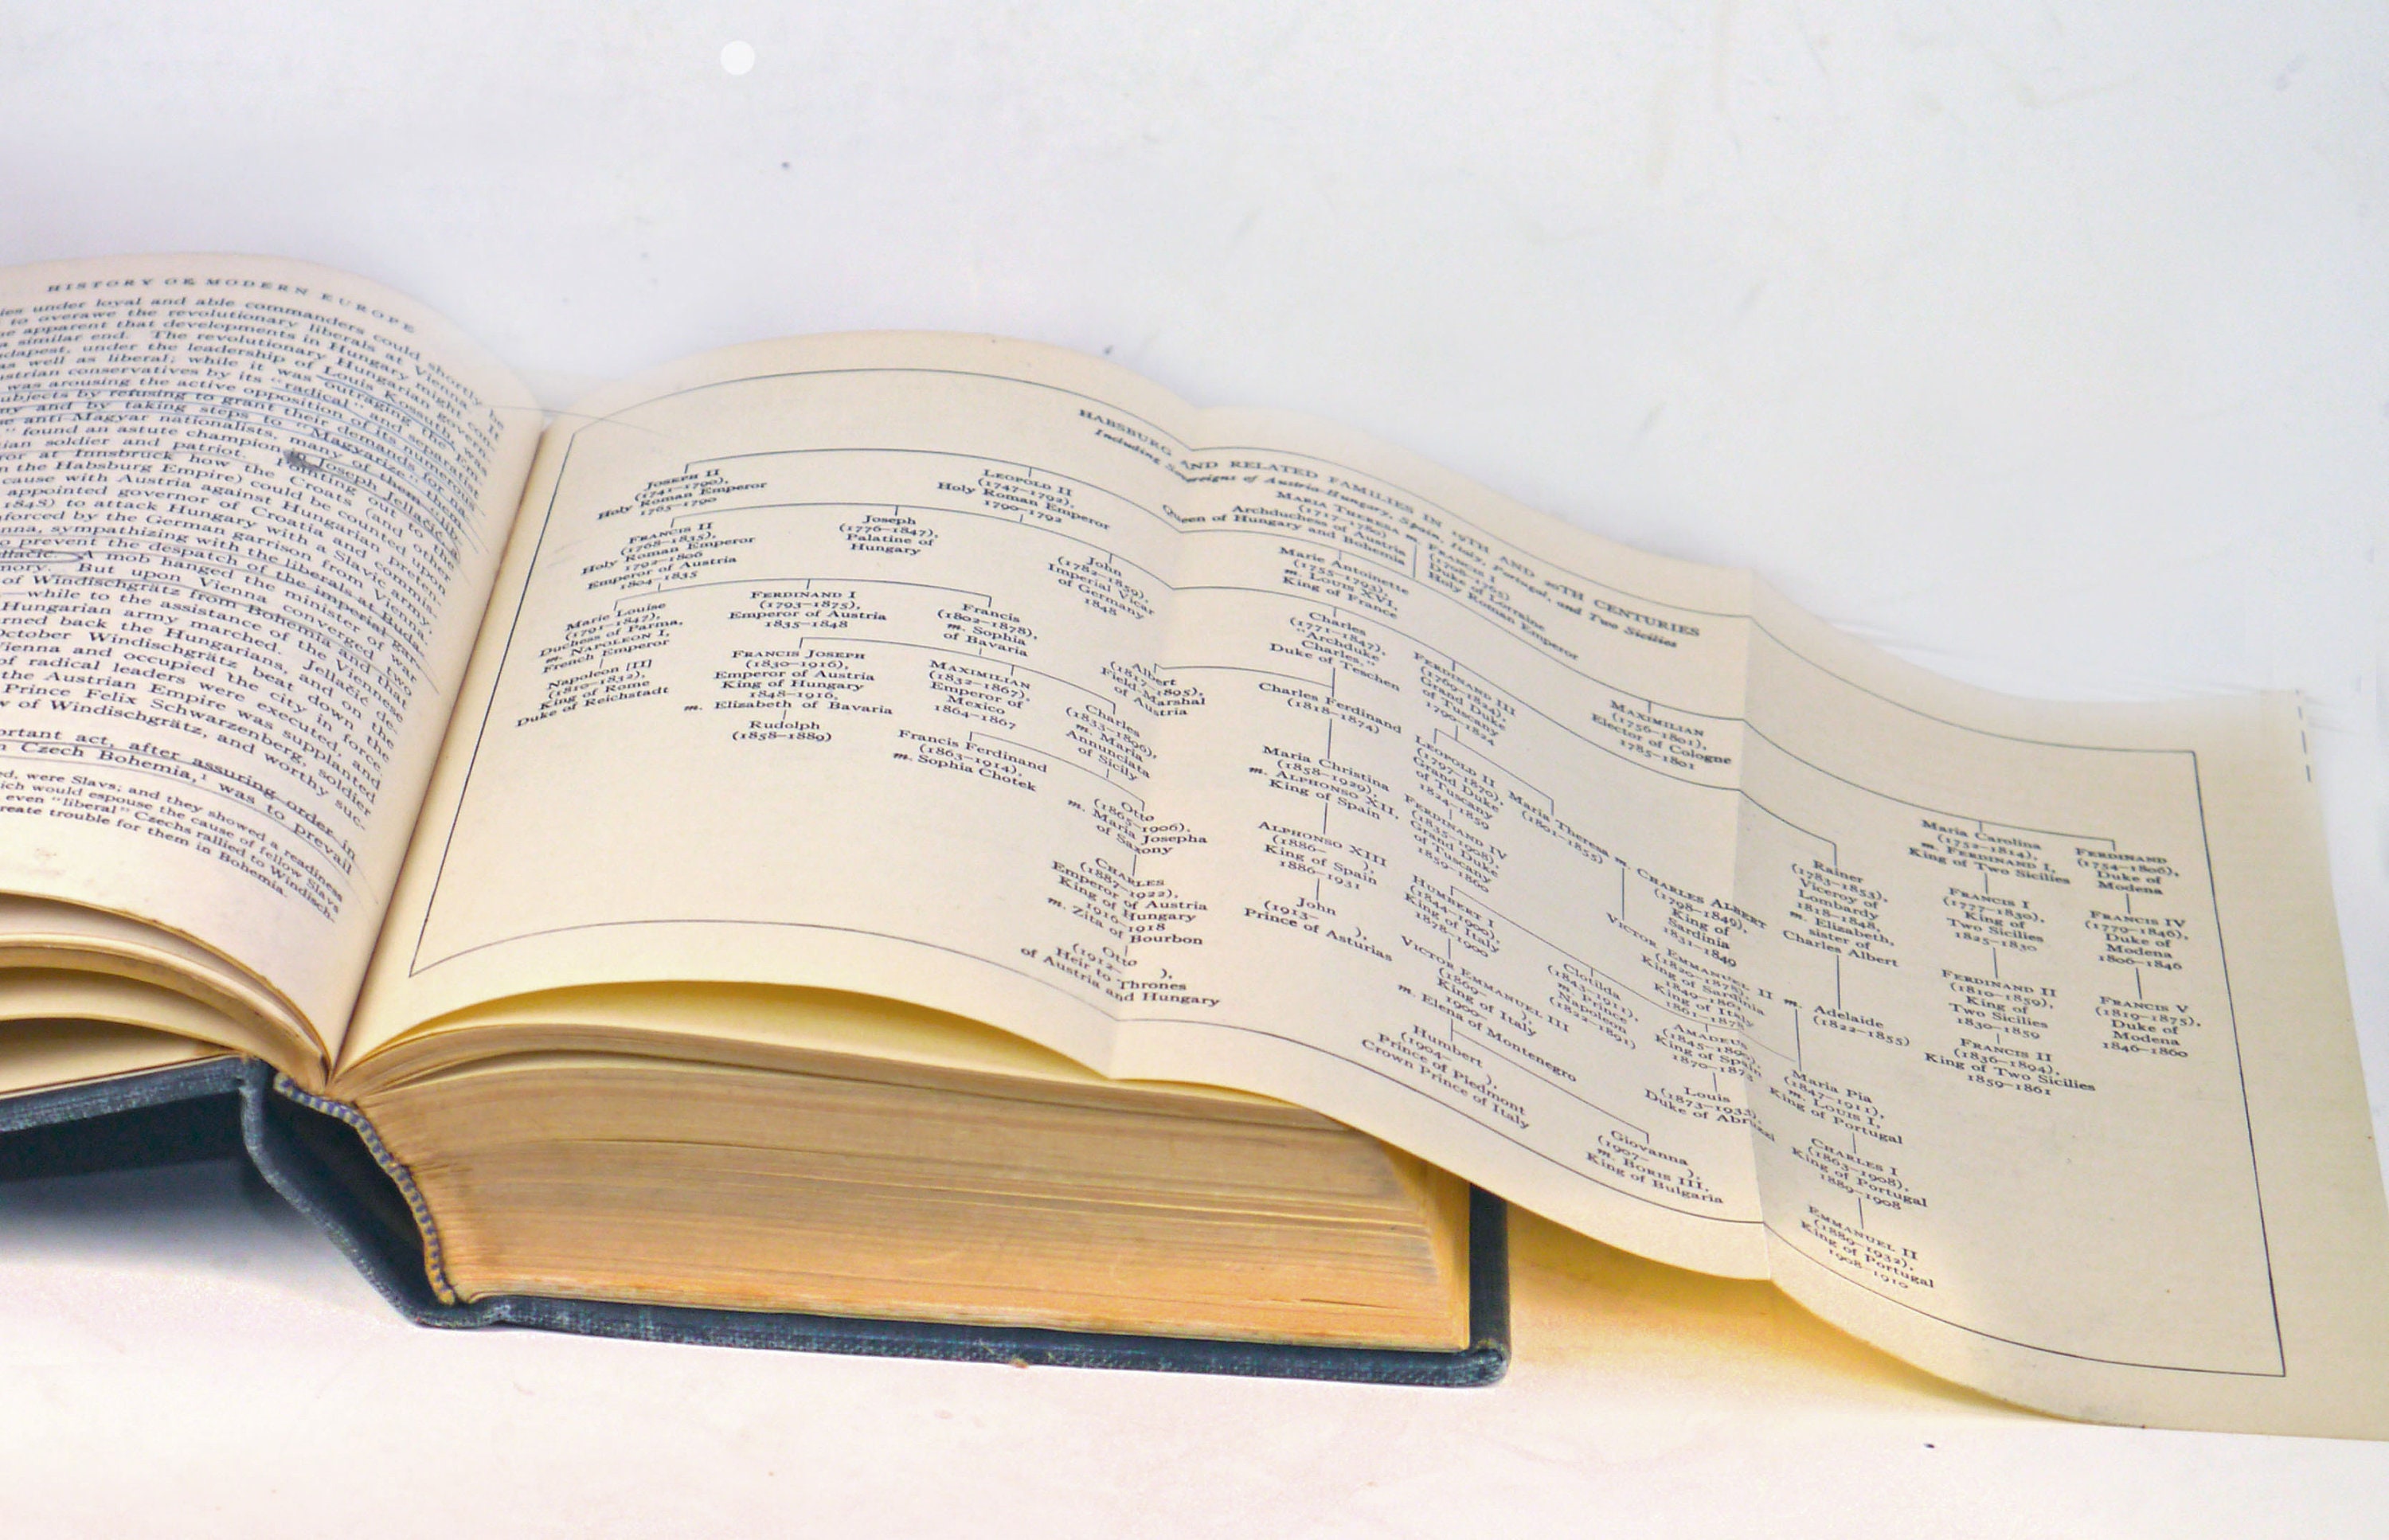 HISTORY OF MODERN EUROPE
ies under loyal and able commanders could shortly be
to overawe the revolutionary liberals at Vienna. It
apparent that developments in Hungary might con-
a similar end. The revolutionary Hungarian govern-
dapest, under the leadership of Louis Kossuth, was
as well as liberal; while it was outraging the
ustrian conservatives by its "radical" and
was arousing the active opposition of its numerous
ubjects by refusing to grant their demands for
ny and by taking steps to "Magyarize" them.
se anti-Magyar nationalists, many of them
" found an astute champion in Joseph Jellačić,
ian soldier and patriot. Pointing out to the
ror at Innsbruck how the Croats (and other
n the Habsburg Empire) could be counted upon
cause with Austria against Hungarian
appointed governor of Croatia and
1848) to attack Hungary with a Slavic army.
forced by the German garrison from Vienna,
nna, sympathizing with the liberals at Buda-
o prevent the despatch of the imperial
llačić. A mob hanged the minister of war
mory. But upon Vienna converged two
of Windischgrätz from Bohemia and that
—while to the assistance of the Viennese
Hungarian army marched. Jellačić de-
rned back the Hungarians, and on the
October Windischgrätz beat down the
Vienna and occupied the city in force.
of radical leaders were executed, and
the Austrian Empire was supplanted
Prince Felix Schwarzenberg, soldier
w of Windischgrätz, and worthy suc-
ortant act, after assuring order in
n Czech Bohemia,¹ was to prevail
ed, were Slavs; and they showed a readiness
ich would espouse the cause of fellow Slavs
even "liberal" Czechs rallied to Windisch-
reate trouble for them in Bohemia.
HABSBURG AND RELATED FAMILIES IN 19TH AND 20TH CENTURIES
Including Sovereigns of Austria-Hungary, Spain, Italy, Portugal, and Two Sicilies
MARIA THERESA m.
(1717–1780)
Archduchess of Austria
Queen of Hungary and Bohemia
FRANCIS I
(1708–1765)
Duke of Lorraine
Holy Roman Emperor
JOSEPH II
(1741–1790),
Holy Roman Emperor
1765–1790
LEOPOLD II
(1747–1792),
Holy Roman Emperor
1790–1792
Marie Antoinette
(1755–1793),
m. LOUIS XVI,
King of France
MAXIMILIAN
(1756–1801),
Elector of Cologne
1785–1801
Maria Carolina
(1752–1814),
m. FERDINAND I,
King of Two Sicilies
FERDINAND
(1754–1806),
Duke of
Modena
FRANCIS II
(1768–1835),
Holy Roman Emperor
1792–1806
Emperor of Austria
1804–1835
Joseph
(1776–1847),
Palatine of
Hungary
John
(1782–1859),
Imperial Vicar
of Germany
1848
Charles
(1771–1847),
"Archduke
Charles,"
Duke of Teschen
FERDINAND III
(1769–1824),
Grand Duke
of Tuscany
1790–1824
Rainer
(1783–1853),
Viceroy of
Lombardy
1818–1848,
m. Elizabeth,
sister of
Charles Albert
FRANCIS I
(1777–1830),
King of
Two Sicilies
1825–1830
FRANCIS IV
(1779–1846),
Duke of
Modena
1806–1846
Marie Louise
(1791–1847),
Duchess of Parma,
m. NAPOLEON I,
French Emperor
FERDINAND I
(1793–1875),
Emperor of Austria
1835–1848
Francis
(1802–1878),
m. Sophia
of Bavaria
Albert
(1817–1895),
Field-Marshal
of Austria
Charles Ferdinand
(1818–1874)
LEOPOLD II
(1797–1870),
Grand Duke
of Tuscany
1824–1859
Maria Theresa m. CHARLES ALBERT
(1801–1855)
(1798–1849),
King of
Sardinia
1831–1849
Napoleon [II]
(1810–1832),
King of Rome
Duke of Reichstadt
FRANCIS JOSEPH
(1830–1916),
Emperor of Austria
King of Hungary
1848–1916,
m. Elizabeth of Bavaria
MAXIMILIAN
(1832–1867),
Emperor of
Mexico
1864–1867
Charles
(1833–1896),
m. Maria
Annunciata
of Sicily
Maria Christina
(1858–1929),
m. ALPHONSO XII,
King of Spain
FERDINAND IV
(1835–1908),
Grand Duke
of Tuscany
1859–1860
VICTOR EMMANUEL II m. Adelaide
(1820–1878),
King of Sardinia
1849–1861
King of Italy
1861–1878
(1822–1855)
FERDINAND II
(1810–1859),
King of
Two Sicilies
1830–1859
FRANCIS V
(1819–1875),
Duke of
Modena
1846–1860
Rudolph
(1858–1889)
Francis Ferdinand
(1863–1914),
m. Sophia Chotek
Otto
(1865–1906),
m. Maria Josepha
of Saxony
ALPHONSO XIII
(1886– ),
King of Spain
1886–1931
HUMBERT I
(1844–1900),
King of Italy
1878–1900
Clotilda
(1843–1911),
m. Prince
Napoleon
(1822–1891)
AMADEUS
(1845–1890),
King of Spain
1870–1873
Maria Pia
(1847–1911),
m. LOUIS I,
King of Portugal
FRANCIS II
(1836–1894),
King of Two Sicilies
1859–1861
CHARLES
(1887–1922),
Emperor of Austria
King of Hungary
1916–1918
m. Zita of Bourbon
John
(1913– ),
Prince of Asturias
VICTOR EMMANUEL III
(1869– ),
King of Italy
1900–
m. Elena of Montenegro
Louis
(1873–1933),
Duke of Abruzzi
CHARLES I
(1863–1908),
King of Portugal
1889–1908
Otto
(1912– ),
Heir to Thrones
of Austria and Hungary
Humbert
(1904– ),
Prince of Piedmont
Crown Prince of Italy
Giovanna
(1907– ),
m. BORIS III,
King of Bulgaria
EMMANUEL II
(1889–1932),
King of Portugal
1908–1910